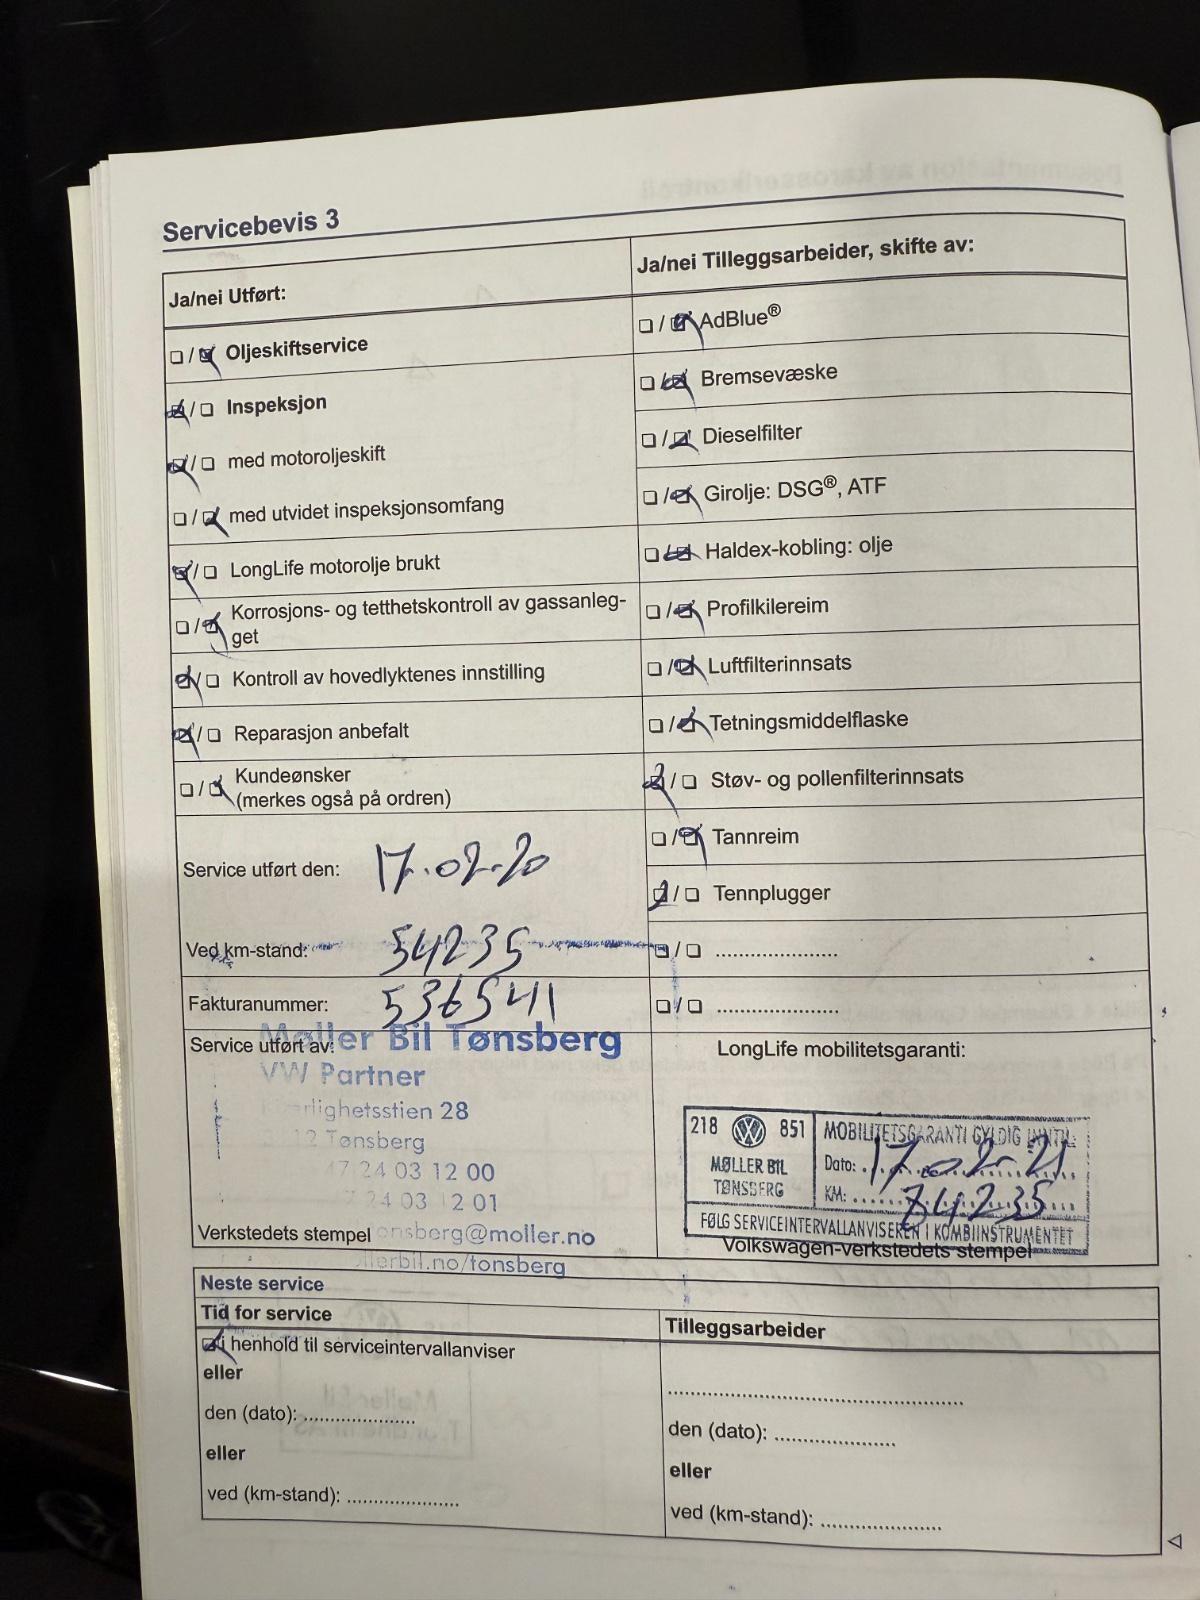 Servicebevis 3
Ja/nei Utført:
☐/☑ Oljeskiftservice
☑/☐ Inspeksjon
☑/☐ med motoroljeskift
☐/☑ med utvidet inspeksjonsomfang
☑/☐ LongLife motorolje brukt
☐/☑ Korrosjons- og tetthetskontroll av gassanleg-
get
☑/☐ Kontroll av hovedlyktenes innstilling
☑/☐ Reparasjon anbefalt
☐/☑ Kundeønsker
(merkes også på ordren)
Service utført den: 17.02.20
Ved km-stand: 54235
Fakturanummer: 5365411
Service utført av:
Møller Bil Tønsberg
VW Partner
Kjærlighetsstien 28
Tønsberg
47 24 03 12 00
24 03 12 01
tonsberg@moller.no
Verkstedets stempel
bil.no/tonsberg
Ja/nei Tilleggsarbeider, skifte av:
☐/☑ AdBlue®
☐/☑ Bremsevæske
☐/☑ Dieselfilter
☐/☑ Girolje: DSG®, ATF
☐/☑ Haldex-kobling: olje
☐/☑ Profilkilereim
☐/☑ Luftfilterinnsats
☐/☑ Tetningsmiddelflaske
☑/☐ Støv- og pollenfilterinnsats
☐/☑ Tannreim
☑/☐ Tennplugger
☐/☐ ......................
☐/☐ ......................
LongLife mobilitetsgaranti:
218 VW 851
MØLLER BIL
TØNSBERG
MOBILITETSGARANTI GYLDIG INNTIL:
Dato: 17.02-21
KM: 84235
FØLG SERVICEINTERVALLANVISEREN I KOMBIINSTRUMENTET
Volkswagen-verkstedets stempel
Neste service
Tid for service
☑ i henhold til serviceintervallanviser
eller
den (dato): ....................
eller
ved (km-stand): ....................
Tilleggsarbeider
................................................
den (dato): ....................
eller
ved (km-stand): ....................